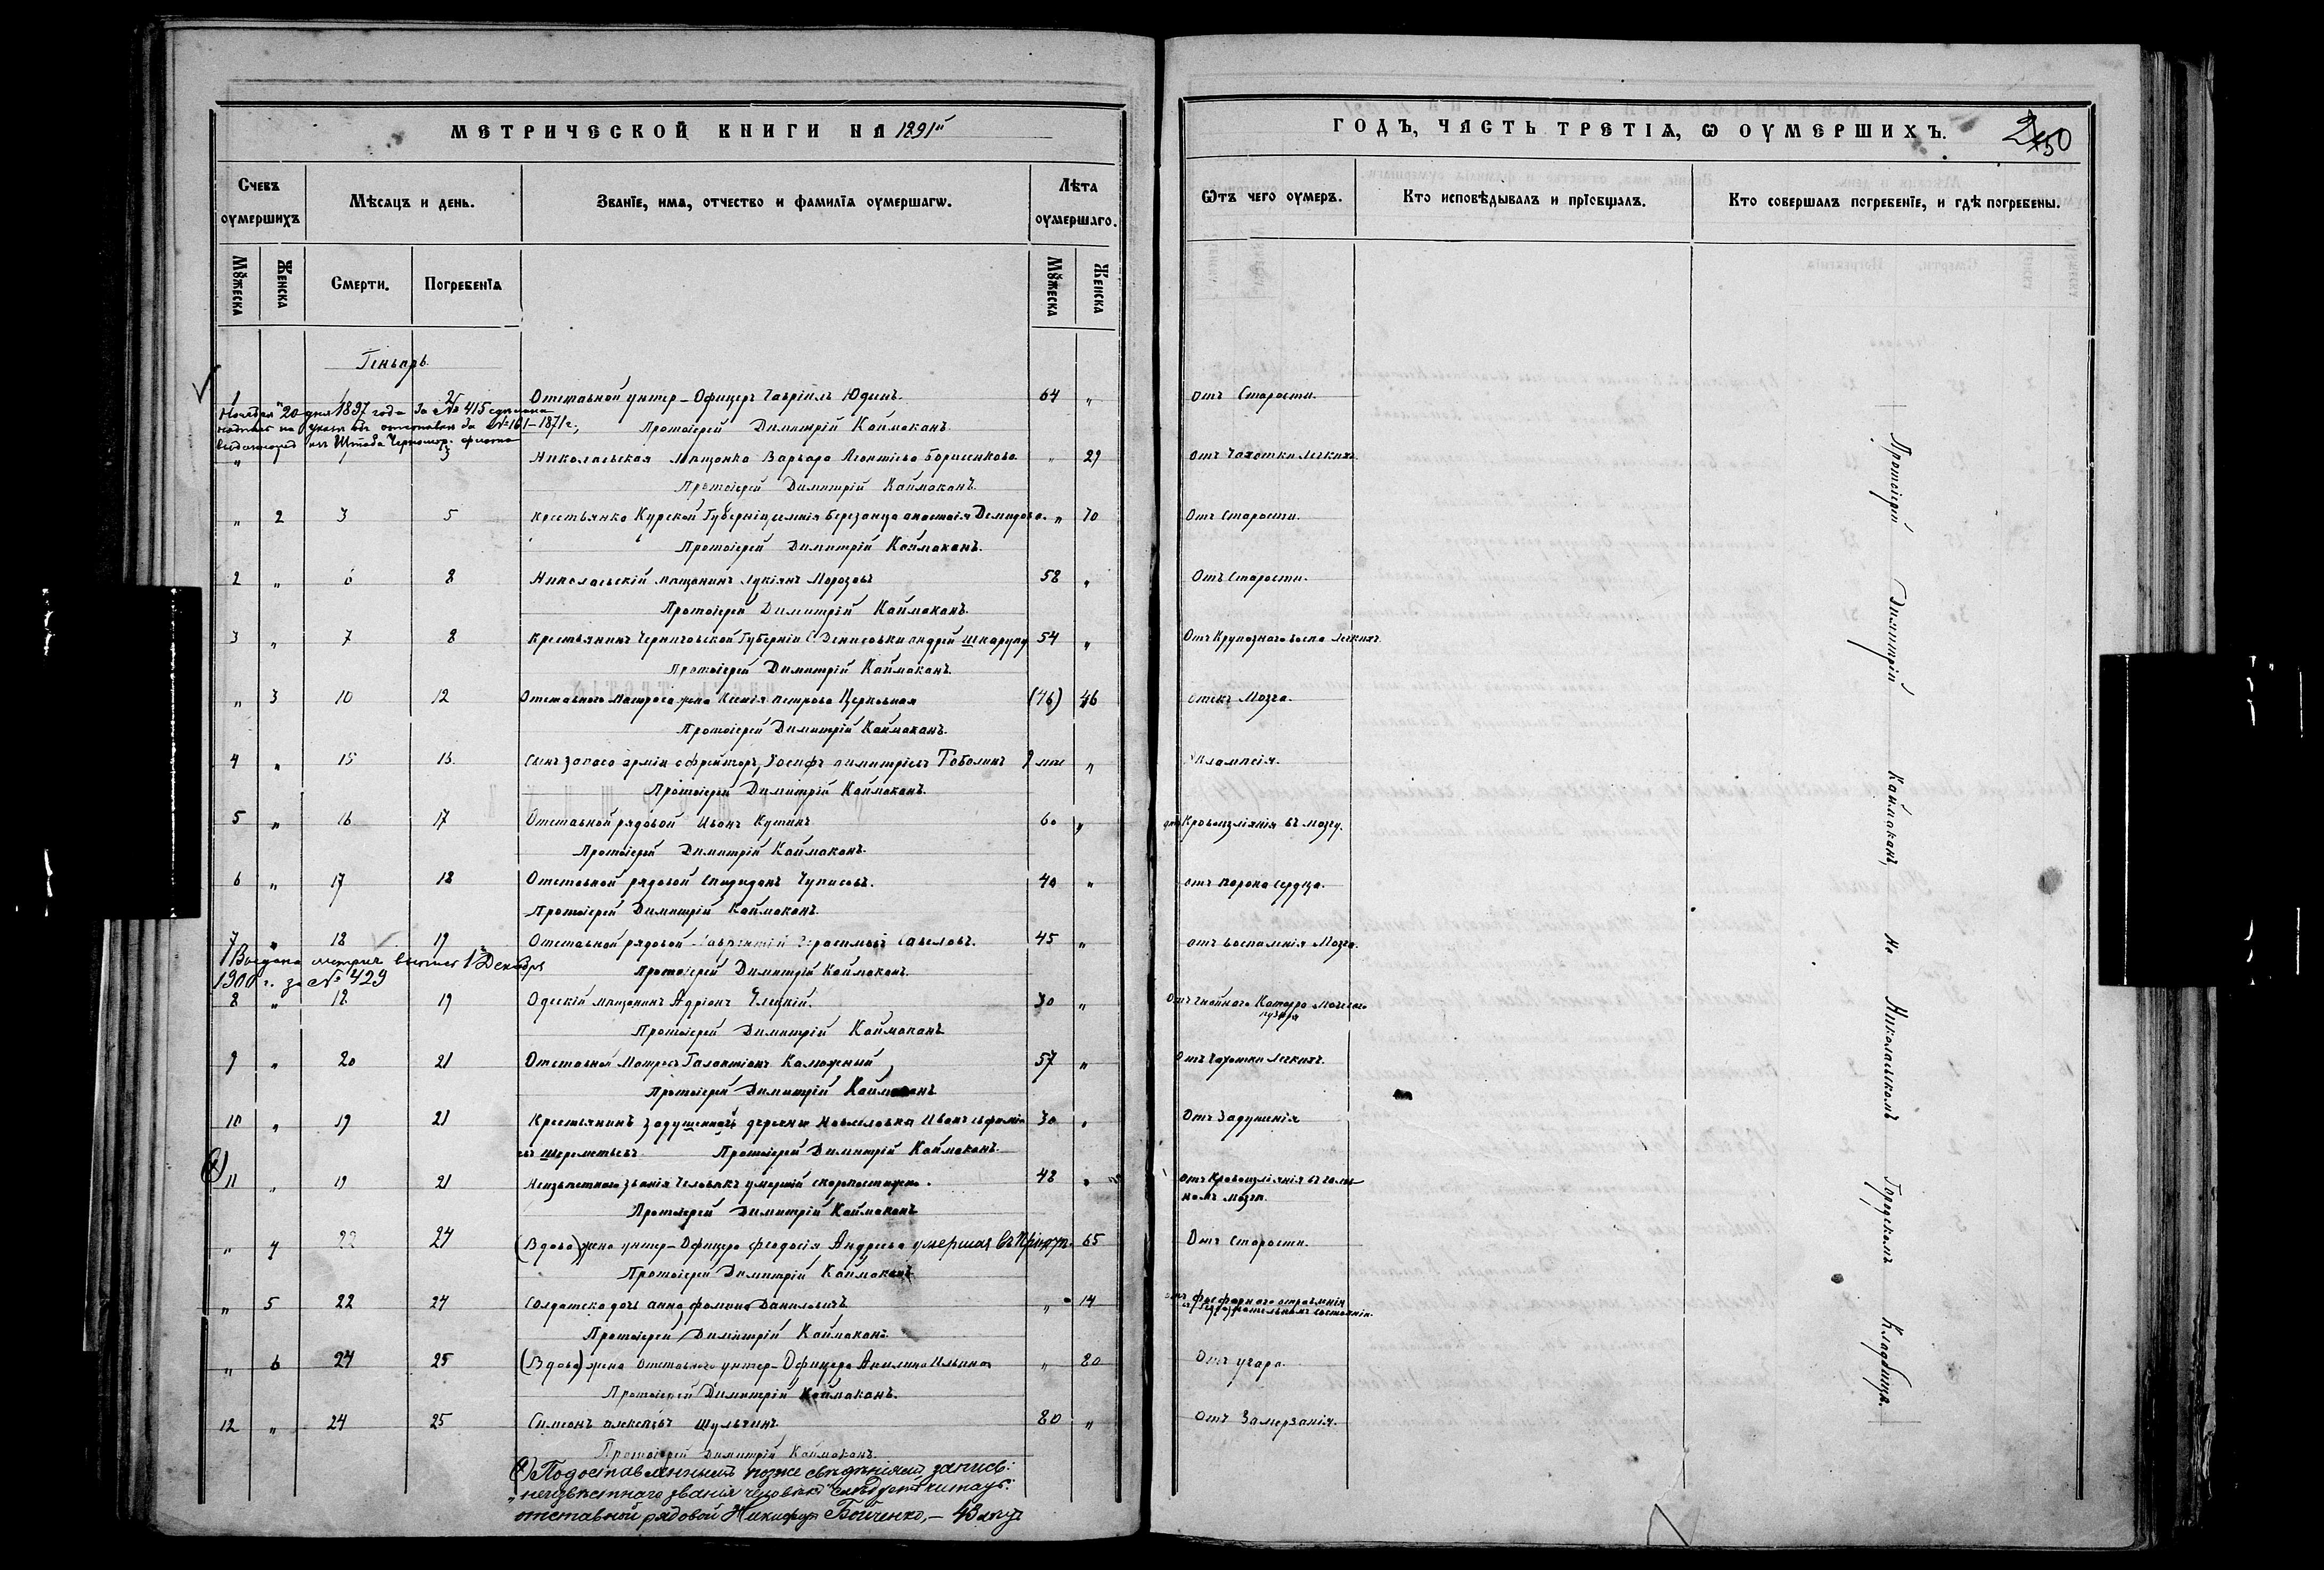 МЕТРИЧЕСКОЙ КНИГИ НА 1891й
Счевъ оумершихъ
Мѣсяцъ и день.
Званіе, има, отчество и фамилія оумершагѡ.
Лѣта оумершаго.
Мѹжеска Женска Смерти. Погребенія Мѹжеска Женска
Геньарь.
1 1 2 Отставной унтер-Офицеръ Гавріилъ Юдинъ. 64 "
Ноября "20 дня 1897 года за № 415 сдѣлана
на указѣ объ отставкѣ за № 161-1871 г.,
изъ Штаба Черномор. флота
Протоіерей Димитрій Каймаканъ.
" 1 3 Николаевская мѣщанка Варвара Леонтіева Борисенкова " 29
Протоіерей Димитрій Каймаканъ.
" 2 3 5 Крестьянка Курской Губерніи Демидова. " 70
Протоіерей Димитрій Каймаканъ.
2 " 6 8 Николаевскій мѣщанинъ Лукіянъ Морозовъ 58 "
Протоіерей Димитрій Каймаканъ.
3 " 7 8 Крестьянинъ Черниговской Губерніи С. Денисовки андрей шкарупа 54 "
Протоіерей Димитрій Каймаканъ.
" 3 10 12 Отставного Матроса жена Ксенія петрова Церковная (46) 46
Протоіерей Димитрій Каймаканъ.
4 " 15 Сынъ запаса арміи ефрейтора, Іосифъ димитріевъ Тоболинъ "
Протоіерей Димитрій Каймаканъ.
5 " 16 17 Отставной рядовой Иванъ Кутинъ 60 "
Протоіерей Димитрій Каймаканъ.
6 " 17 18 Отставной рядовой Спиридонъ Чуписовъ. 40 "
Протоіерей Димитрій Каймаканъ.
7 " 18 19 Отставной рядовой Лаврентій Герасимовъ Савеловъ. 45 "
Выдана метрич. выпись 1 Декабря
1900 г. за № 429
Протоіерей Димитрій Каймаканъ.
8 " 18 19 Одескій мѣщанинъ Адріанъ 30 "
Протоіерей Димитрій Каймаканъ
9 " 20 21 Отставной Матросъ Галактіонъ Калюжный 57 "
Протоіерей Димитрій Каймаканъ
10 " 19 21 Крестьянинъ деревни Иванъ 30 "
шереметьевъ. Протоіерей Димитрій Каймаканъ.
11 " 19 21 Неизвѣстнаго званія Человѣкъ умершій скоропостижно. 48 "
Протоіерей Димитрій Каймаканъ
" 4 22 24 (Вдова) жена унтер-Офицера феодосія Андреева умершая 65
Протоіерей Димитрій Каймаканъ
" 5 22 24 Солдатска дочь анна фомина Даниловичъ " 14
Протоіерей Димитрій Каймаканъ.
" 6 24 25 (Вдова) жена Отставного унтер-Офицера Акилина Ильина " 80
Протоіерей Димитрій Каймаканъ.
12 " 24 25 Симеонъ алексѣевъ шульгинъ. 80 "
Протоіерей Димитрій Каймаканъ.
Подоставленнымъ позже свѣдѣніямъ, запись:
"неизвѣстнаго званія человѣкъ" слѣдуетъ читать:
отставной рядовой Никифоръ Бойченко, – 43 лѣтъ
ГОДЪ, ЧАСТЬ ТРЕТІѦ, Ѡ ОУМЕРШИХЪ.
Ѿтъ чего оумеръ.
Кто исповѣдывалъ и пріобщалъ.
Кто совершалъ погребеніе, и гдѣ погребены.
отъ Старости.
отъ Чахотки легкихъ.
Отъ Старости.
Отъ Старости.
Отъ Крупознаго воспа. легкихъ.
отекъ Мозга.
Эклампсія.
отъ Кровоизліянія въ мозгу.
отъ порока сердца.
отъ воспаленія Мозга.
Отъ гнойнаго Катарра мочевого
пузыря
Отъ Чахотки Легкихъ.
Отъ Задушенія
отъ Кровоизліянія въ голов
номъ мозгѣ.
Отъ Старости.
отъ фосфорнаго отравленія
состояніи.
Отъ угара.
Отъ Замерзанія.
Протоіерей Димитрій Каймаканъ, На Николаевскомъ Городскомъ Кладбищѣ.